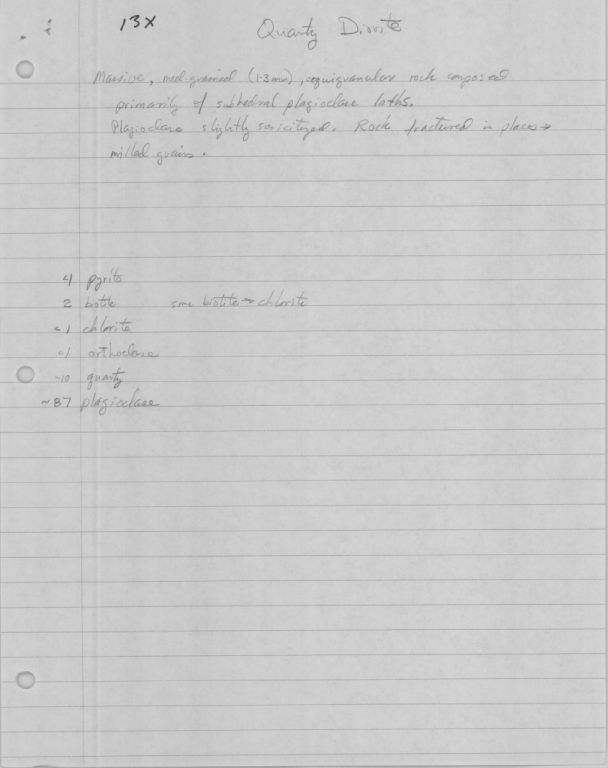 13X
Quartz Diorite
Massive, med-grained (1-3 mm), equigranular rock composed
primarily of subhedral plagioclase laths.
Plagioclase slightly sericitized. Rock fractured in places →
milled grains.
4 pyrite
2 botite some biotite → chlorite
<1 chlorite
<1 orthoclase
~10 quartz
~87 plagioclase